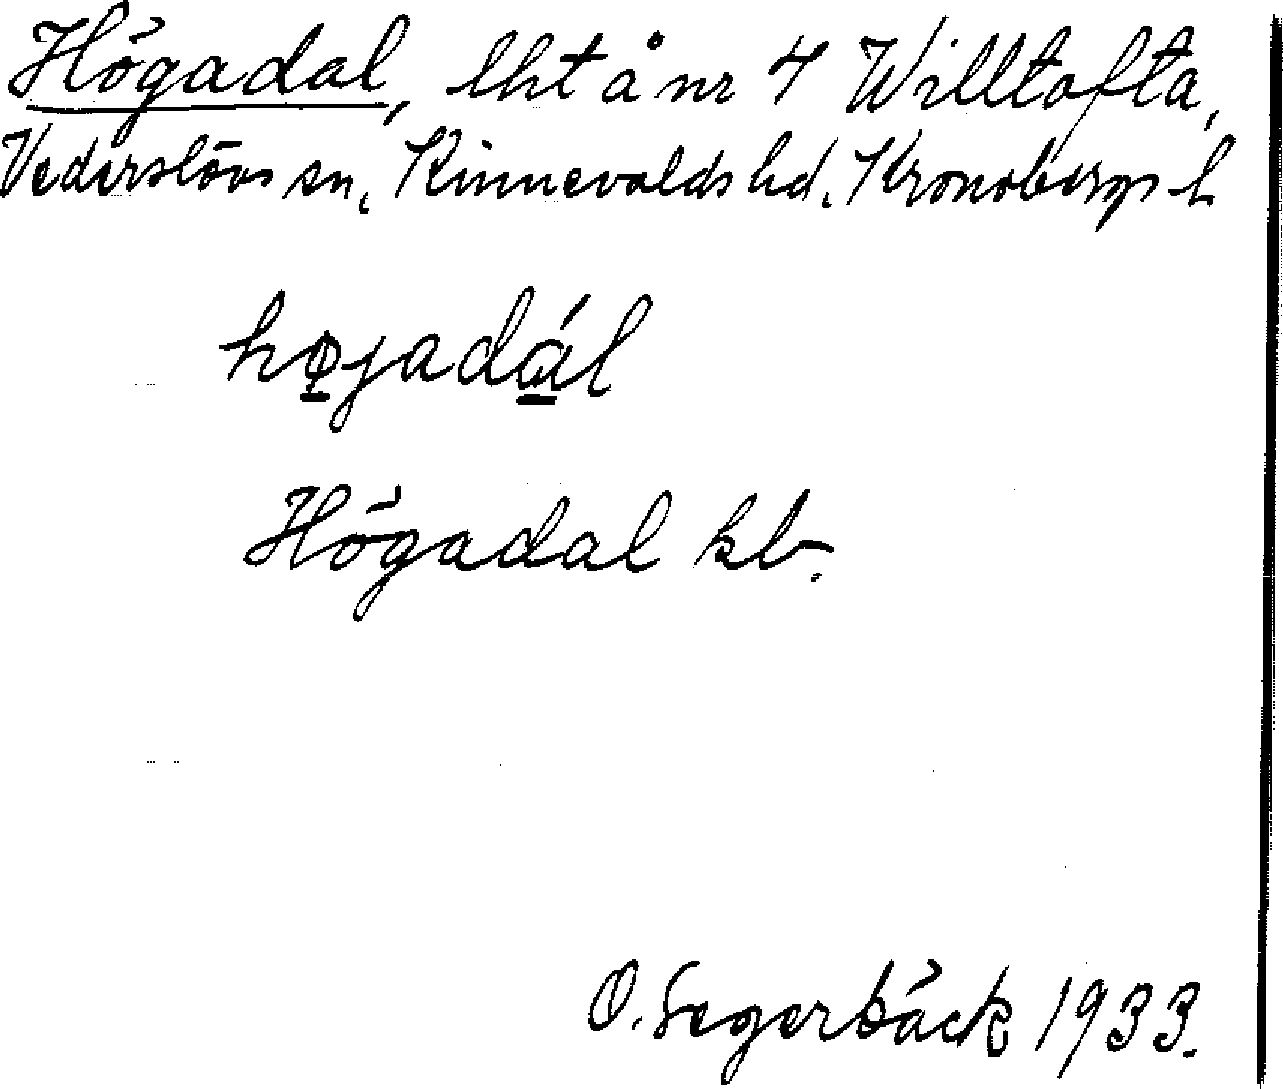 Högadal, lht å nr 4 Willtofta,
Vederslövs sn, Kinnevalds hd, Kronobergs l.
hø̱jadá̱l
Högadal kb.
O. Segerbäck 1933.